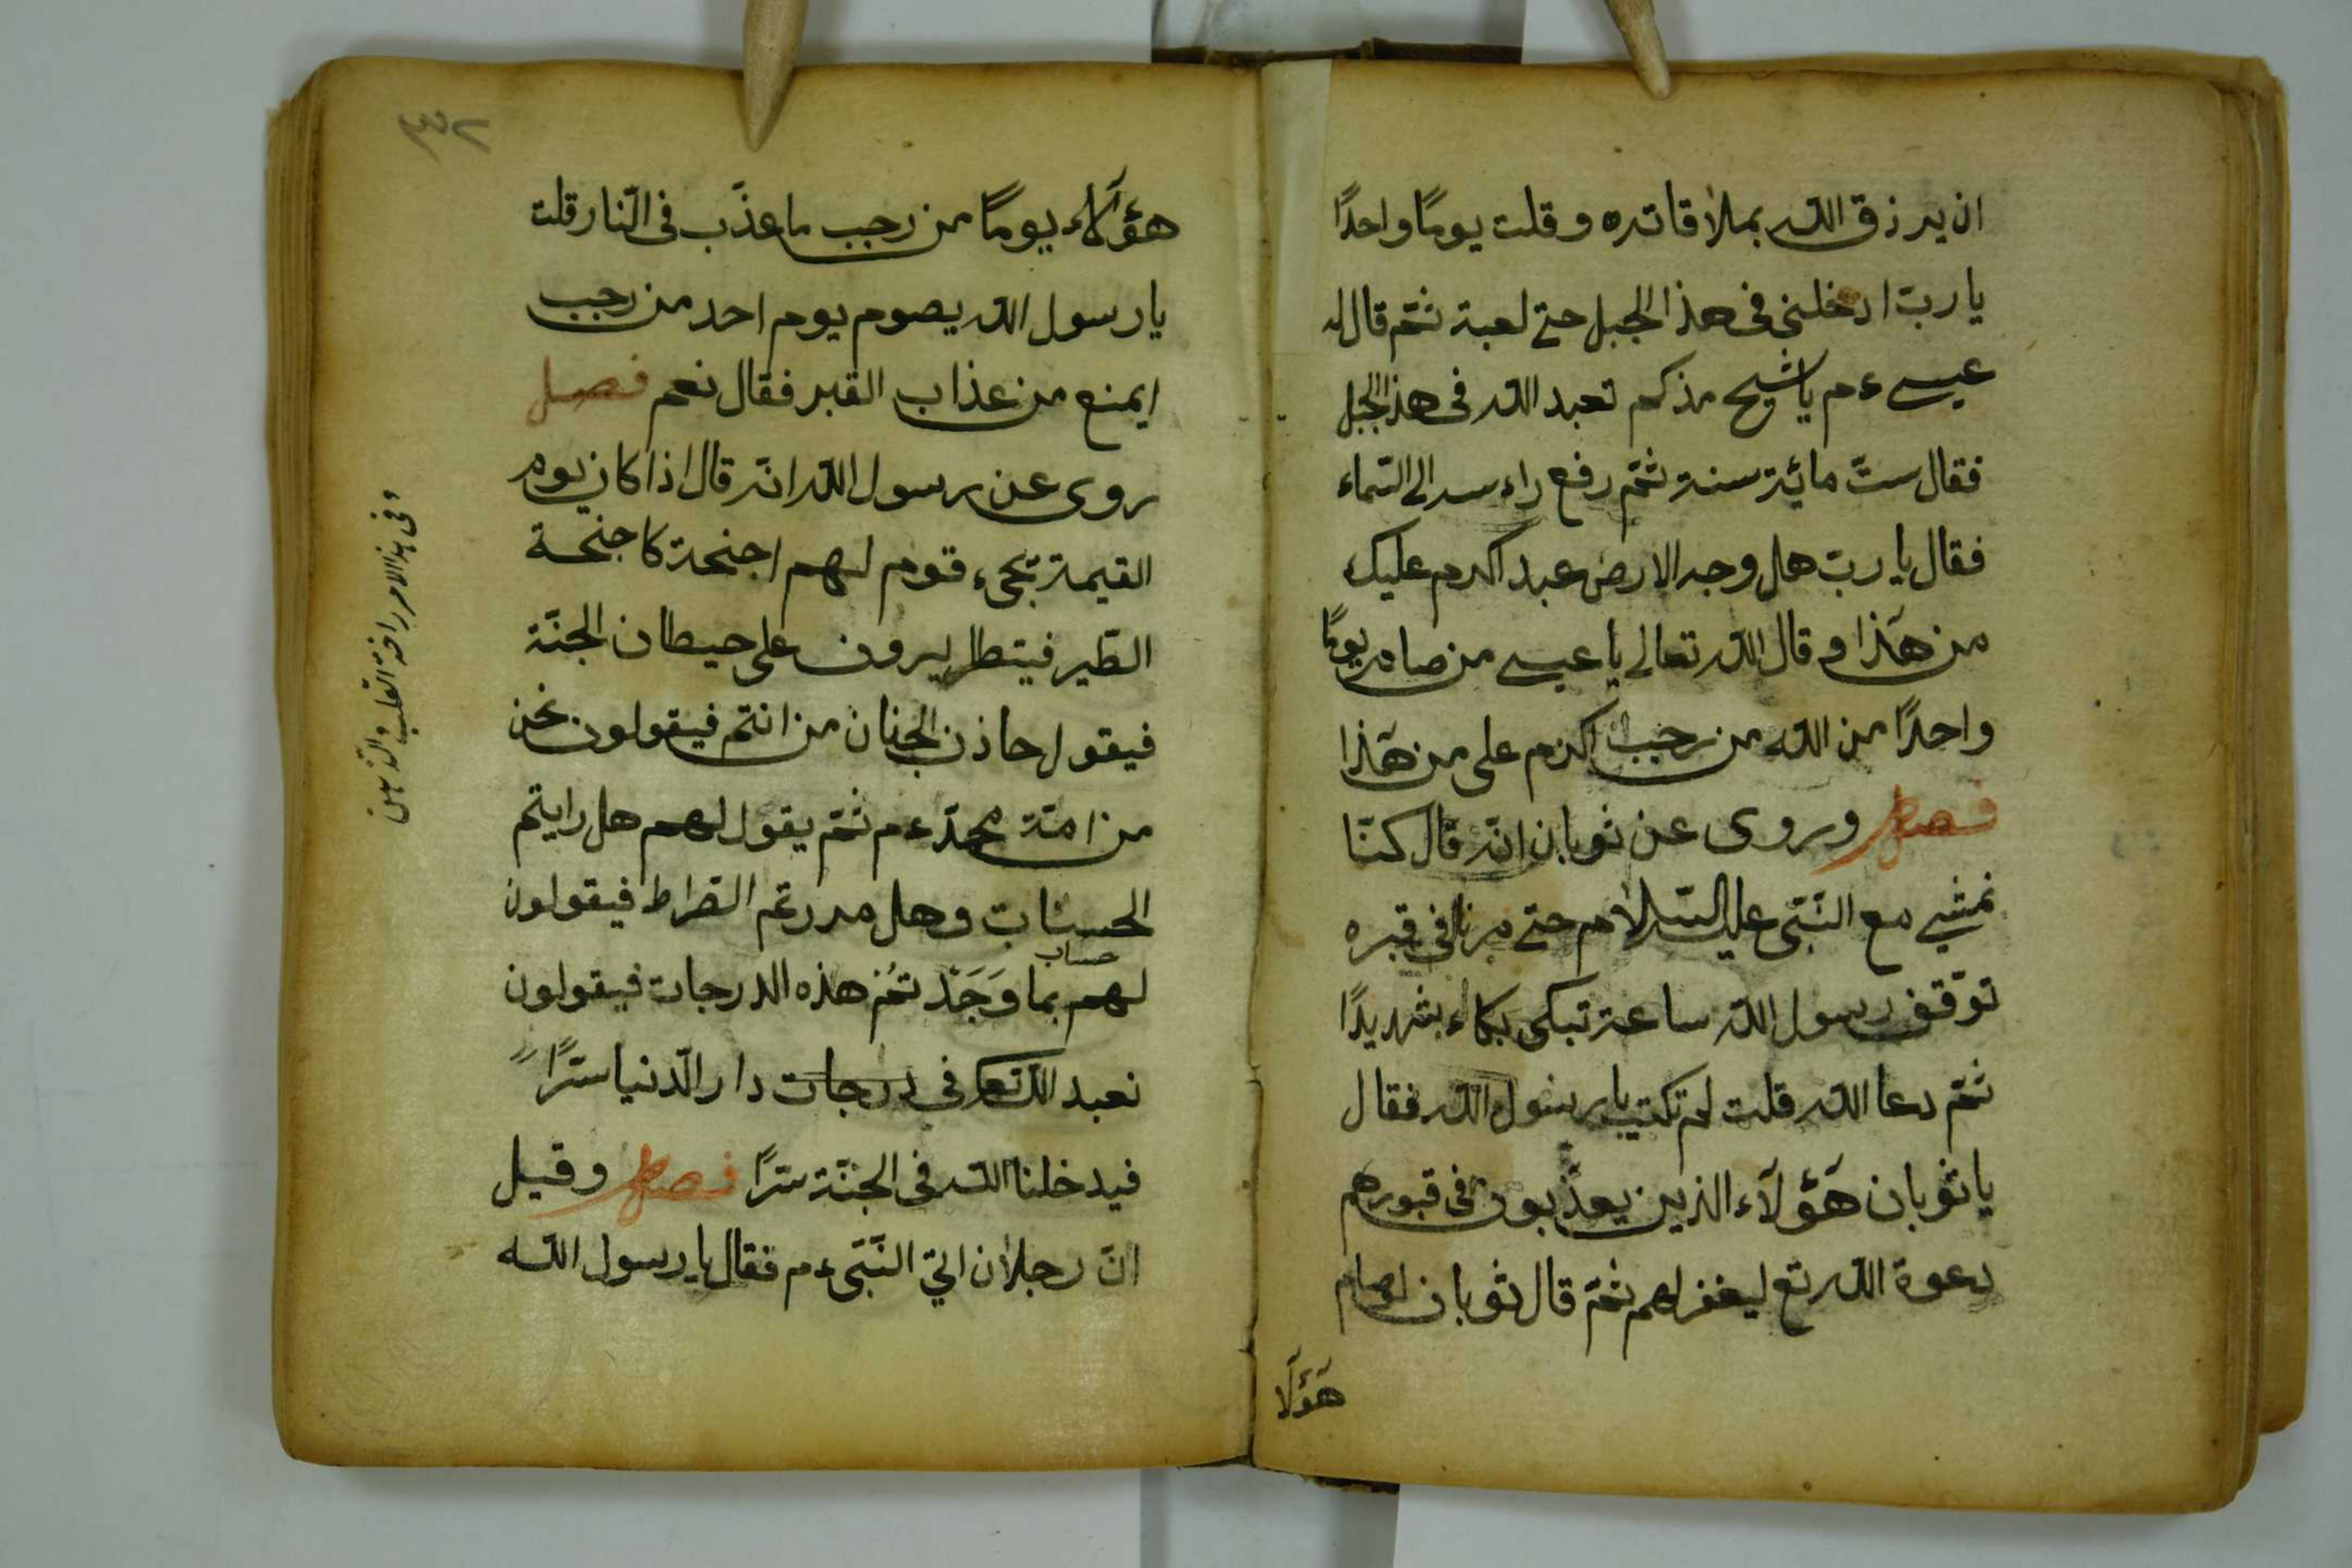 ان يرزق الله بملاقاته وقلت يومًا واحدًا
يا ربّ ادخلني في هذا الجبل حتى لعبة ثمّ قال له
عيسى ءم يا شيخ مذكم تعبد الله في هذا الجبل
فقال ستّ مائة سنة ثمّ رفع راءسه الى السّماء
فقال يا ربّ هل وجه الارض عبد اكرم عليك
من هٓذا وقال الله تعالى يا عيسى من صام يومًا
واحدًا من الله من رجب اكرم على من هٓذا
فصل وروى عن ثوبان انّه قال كنّا
نمشي مع النّبّى عليه السّلام حتى مرنا في قبره
توقّف رسول الله ساعة تبكى بكاء شديدًا
ثمّ دعا الله قلت لم تكبت يا رسول الله فقال
يا ثوبان هٓؤلآء الذين يعذّبون في قبورهم
دعوة الله تع ليغفر لهم ثمّ قال ثوبان لو صام
هٓؤلٓا
٣٢
هؤلآء يومًا من رجب ما عذّب في النّار قلت
يا رسول الله يصوم يوم احد من رجب
ايمنع من عذاب القبر فقال نعم فصل
روى عن رسول الله انّه قال اذا كان يوم
القيمة تجىء قوم لهم اجنحة كاجنحة
الطّير فيتطيرون على حيطان الجنّة
فيقول حاذن الجنان من انتم فيقولون نحن
من امّة محمّد ءم ثمّ يقول لهم هل رايتم
الحسنات وهل مررتم الصّراط فيقولون
حساب
لهم بما وَجَدْتُمْ هذه الدرجات فيقولون
نعبد الله تعا في درجات دار الدّنيا سرًّا
فيدخلنا الله في الجنّة سرًّا فصل وقيل
انّ رجلان اتى النّبّى ءم فقال يا رسول الله
وفي هذا الامر رافة القلب